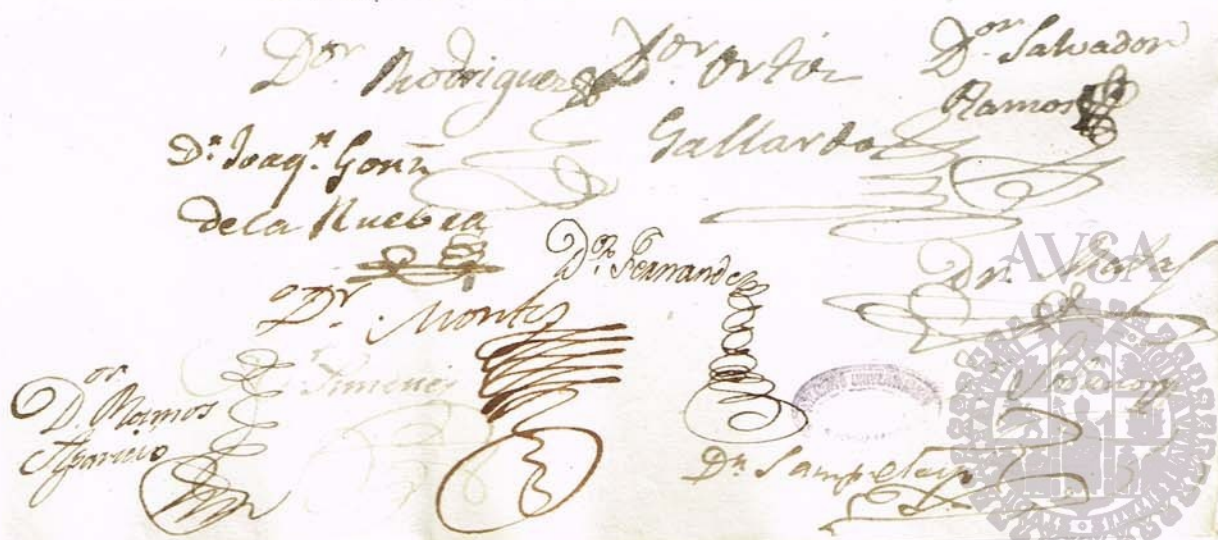 Dor. Rodriguez
Dor. Ortiz
Gallardo
Dor. Salvador
Ramos
Dn. Joaqn. Gonz
de la Nuebea
Dor. Fernandez
Dr. Montes
Dr.
Ximenez
Dor. Ramos
Aparicio
Dr. Sampelayo
AVSA